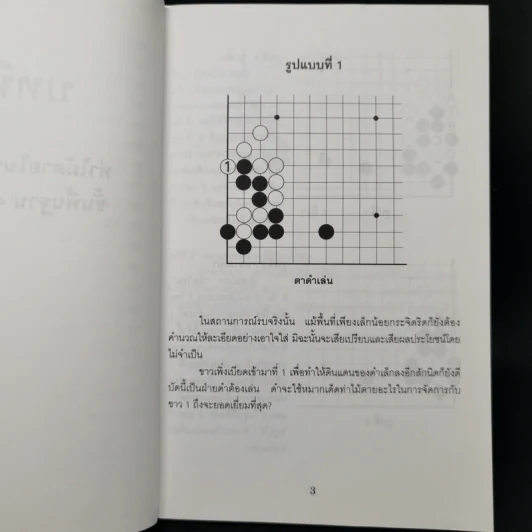 รูปแบบที่ 1
1
ตาดำเล่น
ในสถานการณ์รบจริงนั้น แม้พื้นที่เพียงเล็กน้อยกระจิดริดก็ยังต้อง
คำนวณให้ละเอียดอย่างเอาใจใส่ มิฉะนั้นจะเสียเปรียบและเสียผลประโยชน์โดย
ไม่จำเป็น
ขาวเพิ่งเบียดเข้ามาที่ 1 เพื่อทำให้ดินแดนของดำเล็กลงอีกสักนิดก็ยังดี
บัดนี้เป็นฝ่ายดำต้องเล่น ดำจะใช้หมากเด็ดท่าไม้ตายอะไรในการจัดการกับ
ขาว 1 ถึงจะยอดเยี่ยมที่สุด?
3